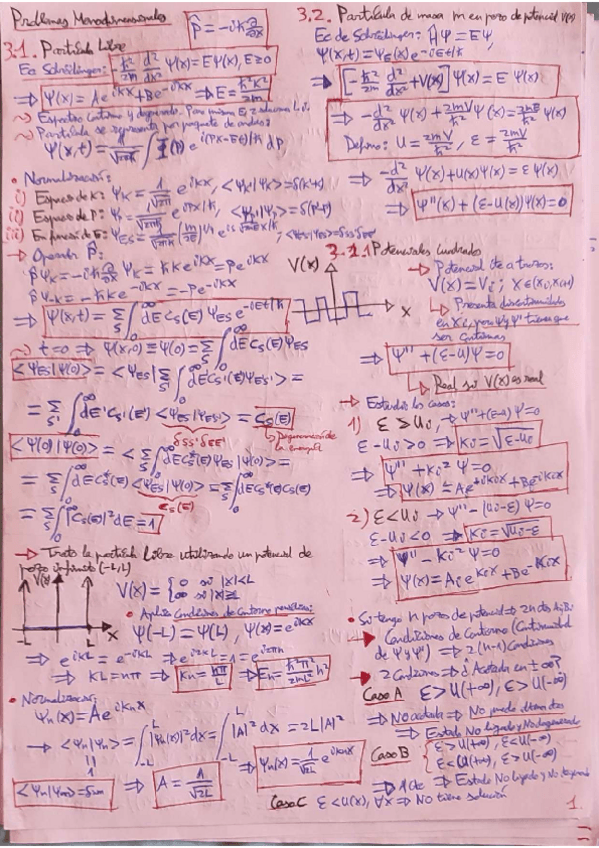 Problemas Monodimensionales
P̂ = -iℏ ∂/∂x
3.1. Partícula Libre
Ec Schrödinger: -ℏ²/2m d²/dx² Ψ(x) = EΨ(x), E≥0
⇒ Ψ(x) = Ae^{ikx} + Be^{-ikx} ⇒ E = ℏ²k²/2m
→ Partícula se representa por paquete de ondas:
Ψ(x,t) = 1/√2πℏ ∫ Φ(p) e^{i(px-Et)/ℏ} dp
• Normalización:
i) Espacio de K: Ψ_K = 1/√2π e^{ikx}, <Ψ_K'|Ψ_K> = δ(k'-k)
ii) Espacio de P:
iii) En función de E:
→ Operador P̂:
P̂Ψ_K = -iℏ ∂/∂x Ψ_K = ℏK e^{ikx} = P e^{ikx}
P̂Ψ_{-K} = -ℏK e^{-ikx} = -P e^{-ikx}
⇒ Ψ(x,t) = Σ_S ∫_0^∞ dE C_S(E) Ψ_ES e^{-iEt/ℏ}
t=0 ⇒ Ψ(x,0) ≡ Ψ(0) = Σ_S ∫_0^∞ dE C_S(E) Ψ_ES
<Ψ_ES|Ψ(0)> = <Ψ_ES| Σ_S' ∫_0^∞ dE' C_S'(E') Ψ_ES'> =
= Σ_S' ∫_0^∞ dE' C_S'(E') <Ψ_ES|Ψ_ES'> = C_S(E)
δ_SS' δ_EE'
Degeneración de
la energía
<Ψ(0)|Ψ(0)> = <Σ_S ∫_0^∞ dE C_S(E) Ψ_ES|Ψ(0)> =
= Σ_S ∫_0^∞ dE C_S*(E) <Ψ_ES|Ψ(0)> = Σ_S ∫_0^∞ dE C_S*(E) C_S(E)
C_S(E)
= Σ_S ∫_0^∞ |C_S(E)|² dE = 1
→ Trato la partícula libre utilizando un potencial de
pozo infinito (-L,L)
V(x)
-L L x
V(x) = {0 si |x|<L
∞ si |x|≥L
• Aplico Condiciones de Contorno periódicas:
Ψ(-L) = Ψ(L), Ψ(x) = e^{ikx}
⇒ e^{ikL} = e^{-ikL} ⇒ e^{i2kL} = 1 = e^{i2πn}
⇒ KL = nπ ⇒ K_n = nπ/L ⇒ E_n = ℏ²π²/2mL² n²
• Normalización:
Ψ_n(x) = A e^{iK_n x}
→ <Ψ_n|Ψ_n> = ∫_{-L}^{L} |Ψ_n(x)|² dx = ∫_{-L}^{L} |A|² dx = 2L|A|²
<Ψ_n|Ψ_m> = δ_nm ⇒ A = 1/√2L ⇒ Ψ_n(x) = 1/√2L e^{iK_n x}
3.2. Partícula de masa m en pozo de potencial V(x)
Ec de Schrödinger: ĤΨ = EΨ
Ψ(x,t) = Ψ_E(x) e^{-iEt/ℏ}
⇒ [-ℏ²/2m d²/dx² + V(x)] Ψ(x) = E Ψ(x)
⇒ -d²/dx² Ψ(x) + 2mV/ℏ² Ψ(x) = 2mE/ℏ² Ψ(x)
Defino: U = 2mV/ℏ², ε = 2mV/ℏ²
⇒ -d²/dx² Ψ(x) + U(x)Ψ(x) = εΨ(x)
⇒ Ψ''(x) + (ε - U(x))Ψ(x) = 0
3.2.1 Potenciales cuadrados
V(x)
x
→ Potencial cte a trozos:
V(x) = V_i; x∈(x_i, x_{i+1})
Presenta discontinuidades
en x_i, pero Ψ y Ψ' tienen que
ser continuas
⇒ Ψ'' + (ε-U)Ψ = 0
Real si V(x) es real
→ Estudio los casos:
1) ε > U_i → Ψ'' + (ε-U_i)Ψ = 0
ε - U_i > 0 ⇒ K_i = √ε-U_i
⇒ Ψ'' + K_i² Ψ = 0
⇒ Ψ(x) = A e^{+iK_i x} + B e^{-iK_i x}
2) ε < U_i → Ψ'' - (U_i-ε)Ψ = 0
ε - U_i < 0 ⇒ K_i = √U_i-ε
⇒ Ψ'' - K_i² Ψ = 0
⇒ Ψ(x) = A_i e^{K_i x} + B e^{-K_i x}
• Si tengo n pozos de potencial ⇒ 2n ctes A_i, B_i
Condiciones de Contorno (Continuidad
de Ψ y Ψ') ⇒ 2(n-1) Condiciones
2 Condiciones ⇒ ¿Acotada en ±∞?
Caso A ε > U(+∞), ε > U(-∞)
⇒ No acotada ⇒
⇒ Estado No ligado y Degenerado
Caso B {ε > U(+∞), ε < U(-∞)
ε < U(+∞), ε > U(-∞)
⇒ 1 Cte ⇒ Estado No ligado y No degenerado
Caso C ε < U(x), ∀x ⇒ No tiene solución
1.